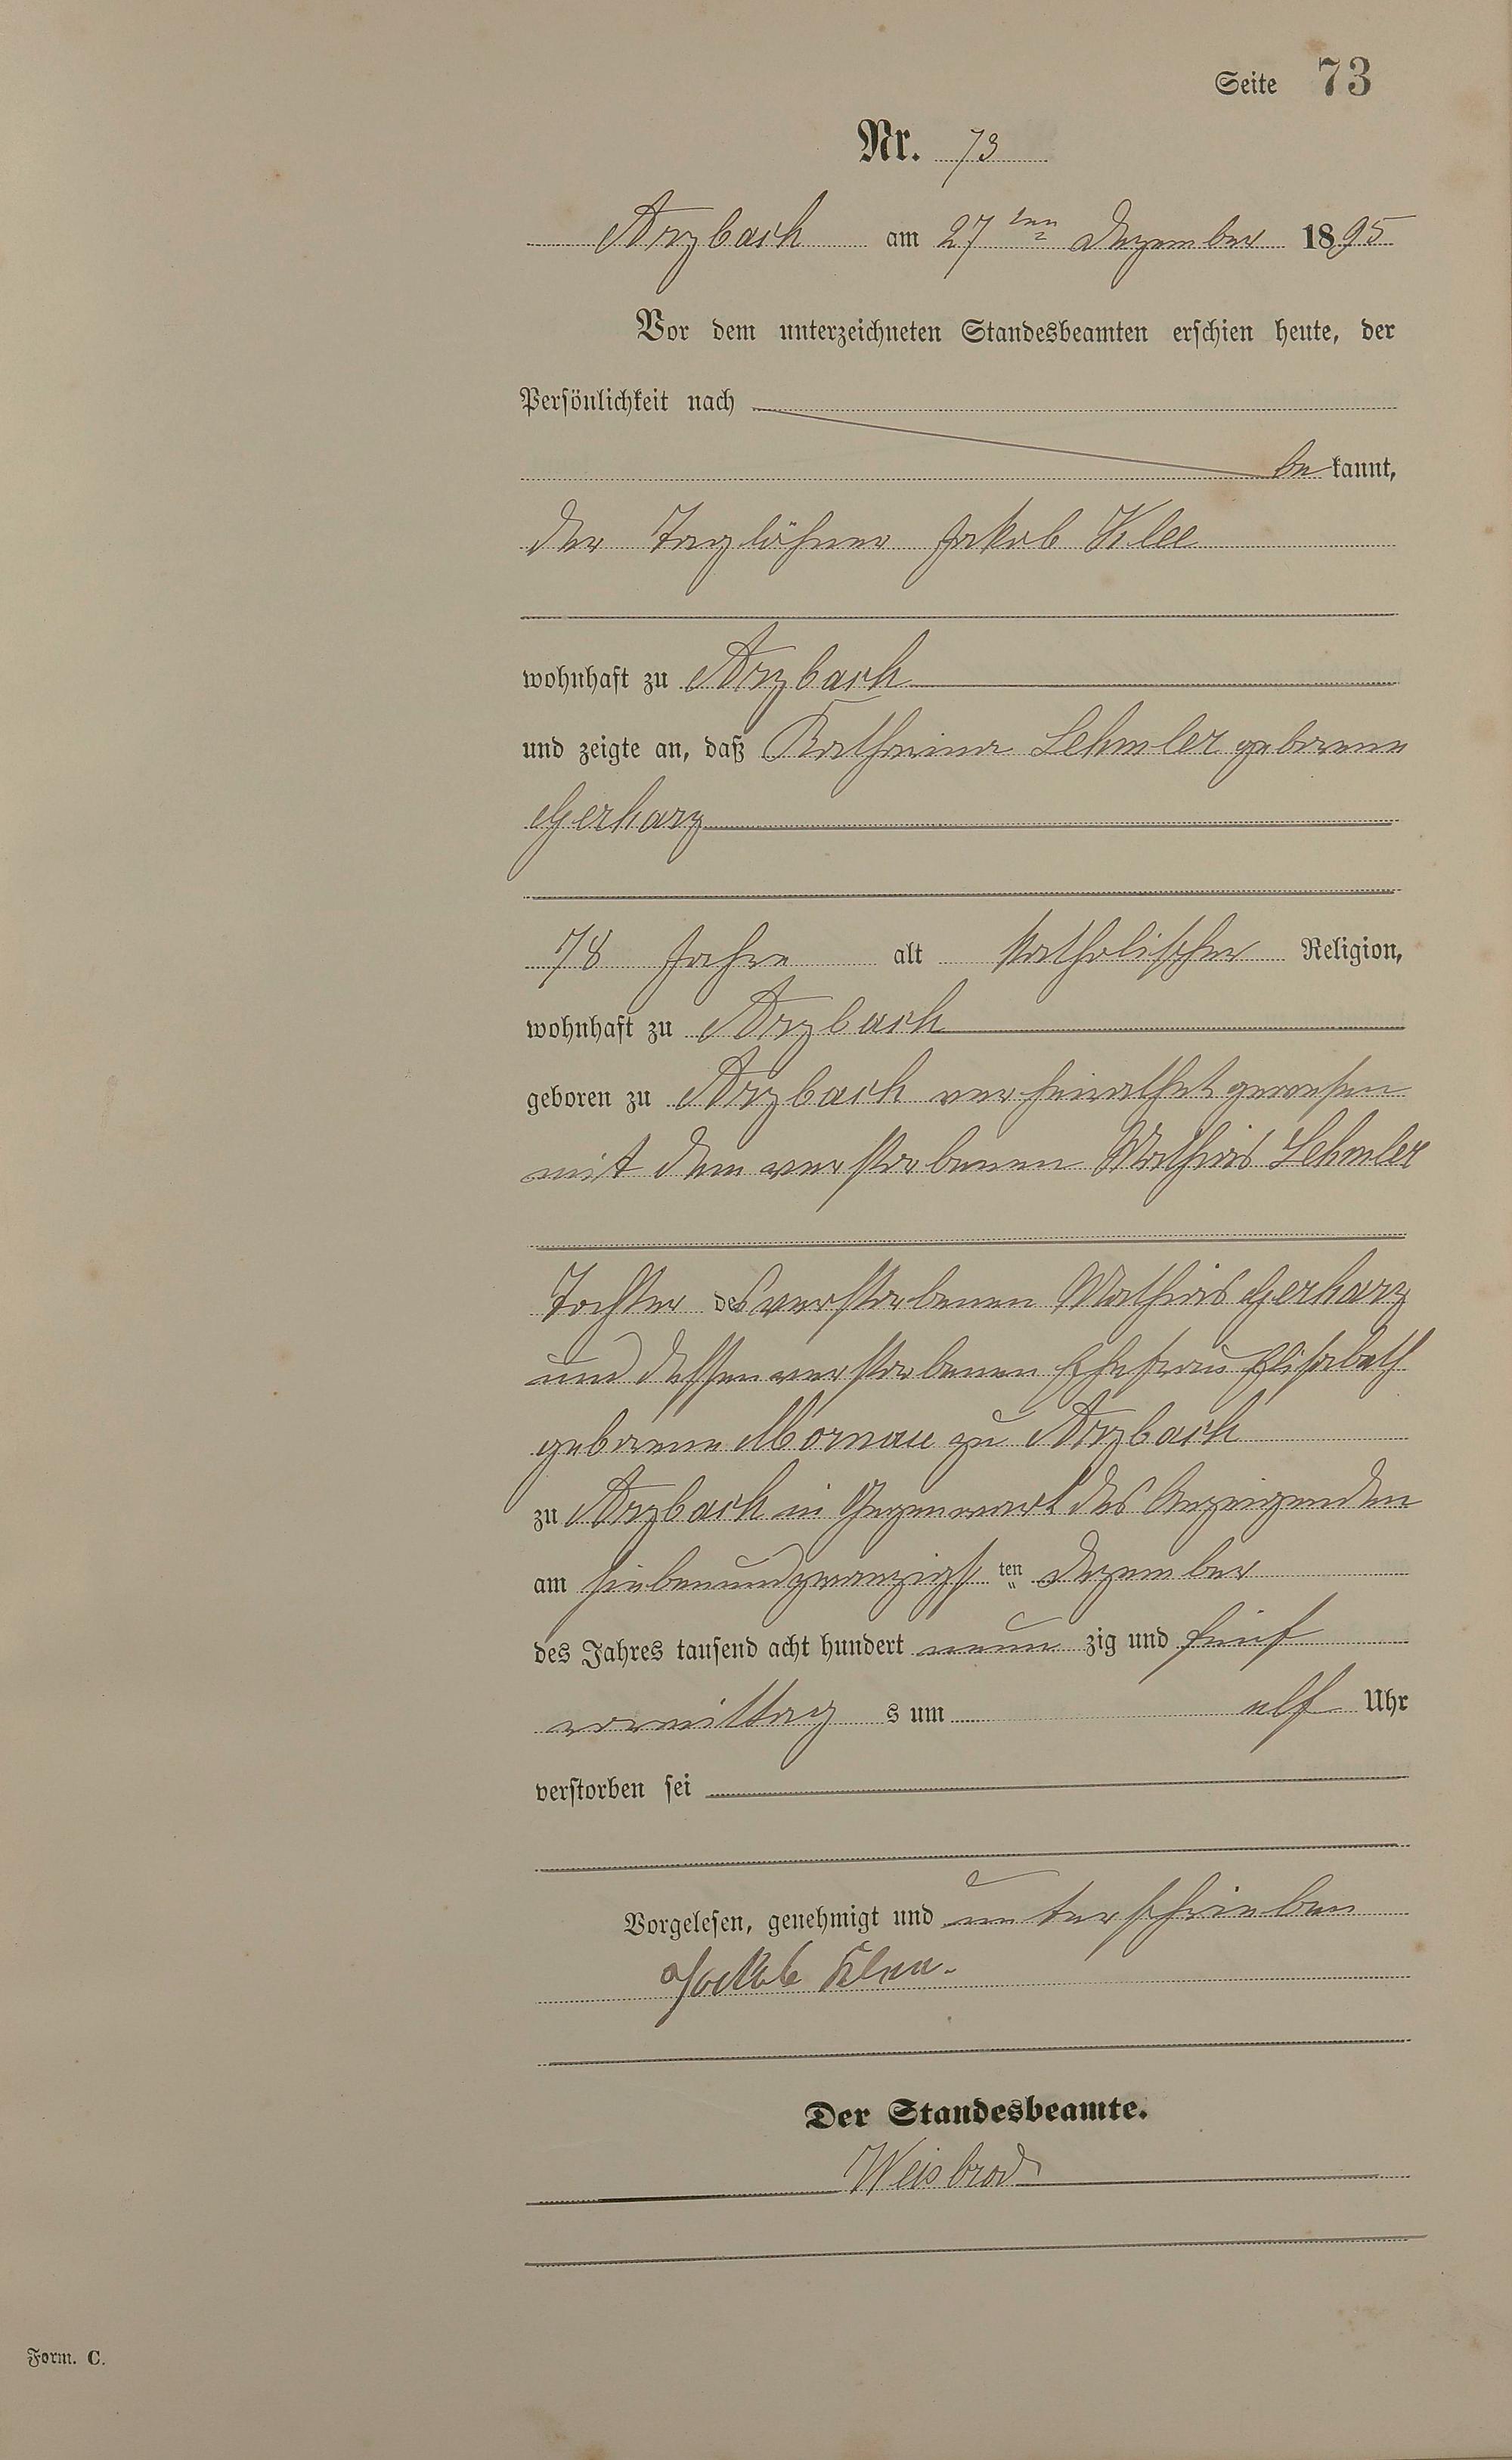 Seite 73
Nr. 73
Arzbach am 27ten Dezember 1895
Vor dem unterzeichneten Standesbeamten erschien heute, der
Persönlichkeit nach
bekannt,
der Taglöhner Jakob Klee
wohnhaft zu Arzbach
und zeigte an, daß Katharina Lehmler geborene
Gerharz
78 Jahre alt katholischer Religion,
wohnhaft zu Arzbach
geboren zu Arzbach verheirathet gewesen
mit dem verstorbenen Mathias Lehmler
Tochter des verstorbenen Mathias Gerharz
und dessen verstorbenen Ehefrau Elisabeth
geborene Mornau zu Arzbach
zu Arzbach in Gegenwart des Anzeigenden
am siebenundzwanzigsten Dezember
des Jahres tausend acht hundert neunzig und fünf
vormittags um elf Uhr
verstorben sei
Vorgelesen, genehmigt und unterschrieben
Jackob Klee.
Der Standesbeamte.
Weisbrod
Form. C.